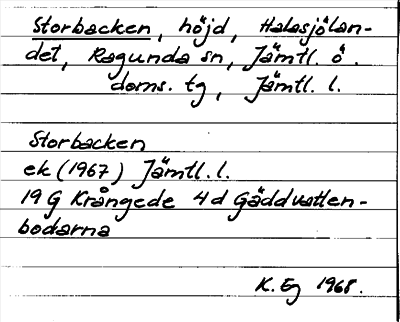 Storbacken, höjd, Halasjölan-
det, Ragunda sn, Jämtl. ö.
doms. tg, Jämtl. l.
Storbacken
ek (1967) Jämtl. l.
19 G Krångede 4 d Gäddvatten-
bodarna
K. Eg 1968.